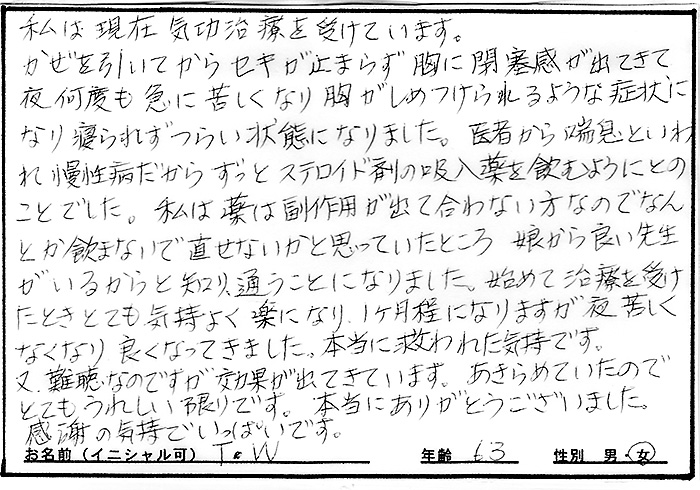 私は現在気功治療を受けています。
かぜを引いてからセキが止まらず胸に閉塞感が出てきて
夜何度も急に苦しくなり胸がしめつけられるような症状に
なり寝られずつらい状態になりました。医者から喘息といわ
れ慢性病だからずっとステロイド剤の吸入薬を飲むようにとの
ことでした。私は薬は副作用が出て合わない方なのでなん
とか飲まないで直せないかと思っていたところ 娘から良い先生
がいるからと知り、通うことになりました。始めて治療を受け
たときとても気持よく楽になり、1ヶ月程になりますが夜苦しく
なくなり良くなってきました。本当に救われた気持です。
又、難聴なのですが効果が出てきています。あきらめていたので
とてもうれしい限りです。本当にありがとうございました。
感謝の気持でいっぱいです。
お名前（イニシャル可） T.W 年齢 63 性別 男・女